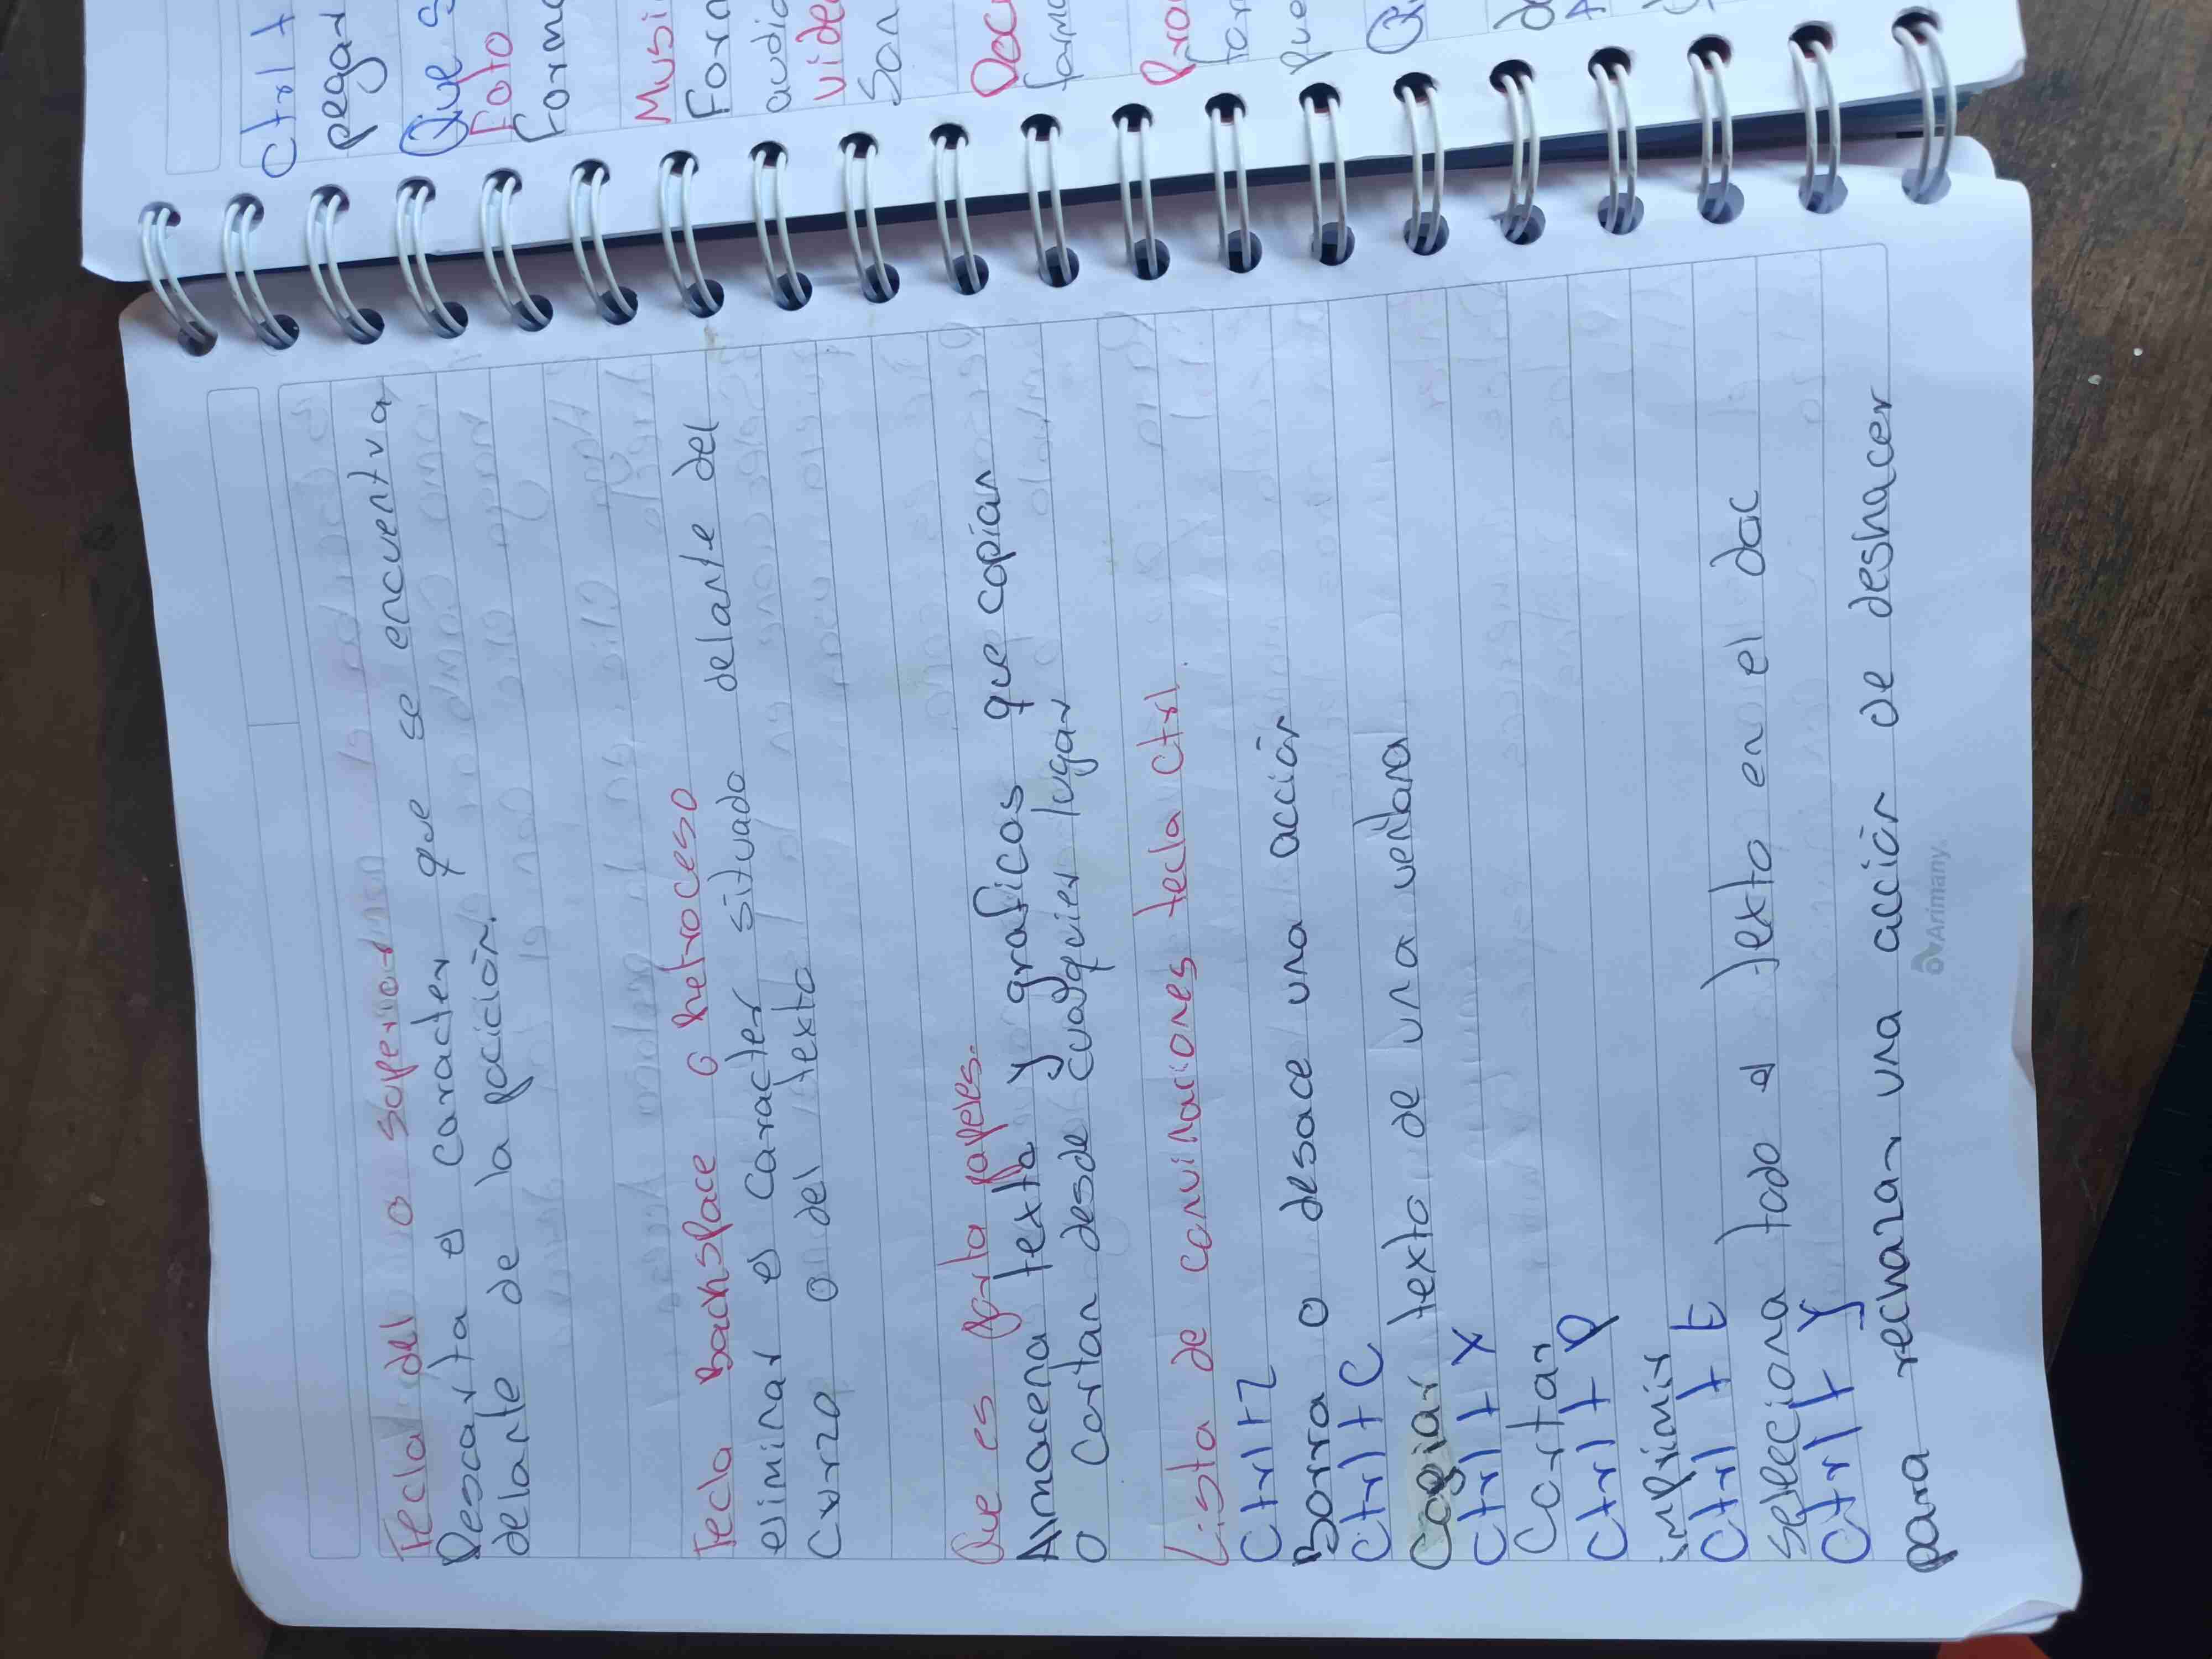 Tecla del o superior
Descarta el caracter que se encuentra
delante de la pocición.
Tecla Backspace o Retroceso
eliminar el caracter situado delante del
Curzo o del texto
Que es Porta papeles.
Almacena texto y graficos que copian
o cortan desde cualquier lugar
Lista de convinaciones tecla ctrl
Ctrl+Z
Borra o desace una acción
Ctrl+C
Copiar texto de una ventana
Ctrl+X
Cortar
Ctrl+P
imprimir
Ctrl+E
selecciona todo el texto en el doc
Ctrl+Y
para rechazar una acción de deshacer
Arimany
Ctrl+
pegar
Que
Foto
Forma